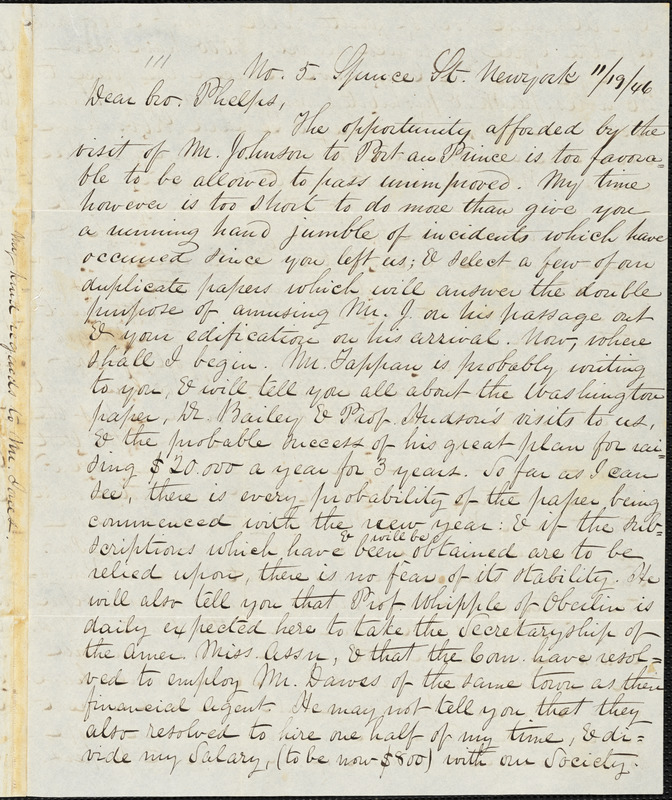 No. 5. Spruce St. New york 11/19/46
Dear bro. Phelps,
The opportunity afforded by the
visit of Mr. Johnson to Port au Prince is too favora=
ble to be allowed to pass unimproved. My time
however is too short to do more than give you
a running hand jumble of incidents which have
occurred since you left us; & select a few of our
duplicate papers which will answer the double
purpose of amusing Mr. J. on his passage out
& your edification on his arrival. Now, where
shall I begin. Mr. Tappan is probably writing
to you, & will tell you all about the Washington
paper, Dr. Bailey & Prof. Hudson's visits to us,
& the probable success of his great plan for rai=
sing $20.000 a year for 3 years. So far as I can
see, there is every probability of the paper being
commenced with the new year: & if the sub=
scriptions which have & will be been obtained are to be
relied upon, there is no fear of its stability. He
will also tell you that Prof Whipple of Oberlin is
daily expected here to take the Secretaryship of
the Amer. Miss. Assn, & that the Com. have resol=
ved to employ Mr. Dawes of the same town as their
financial agent. He may not tell you that they
also resolved to hire one half of my time, & di=
vide my Salary, (to be now $800) with our Society.
My kind regards to Mr. Jones.